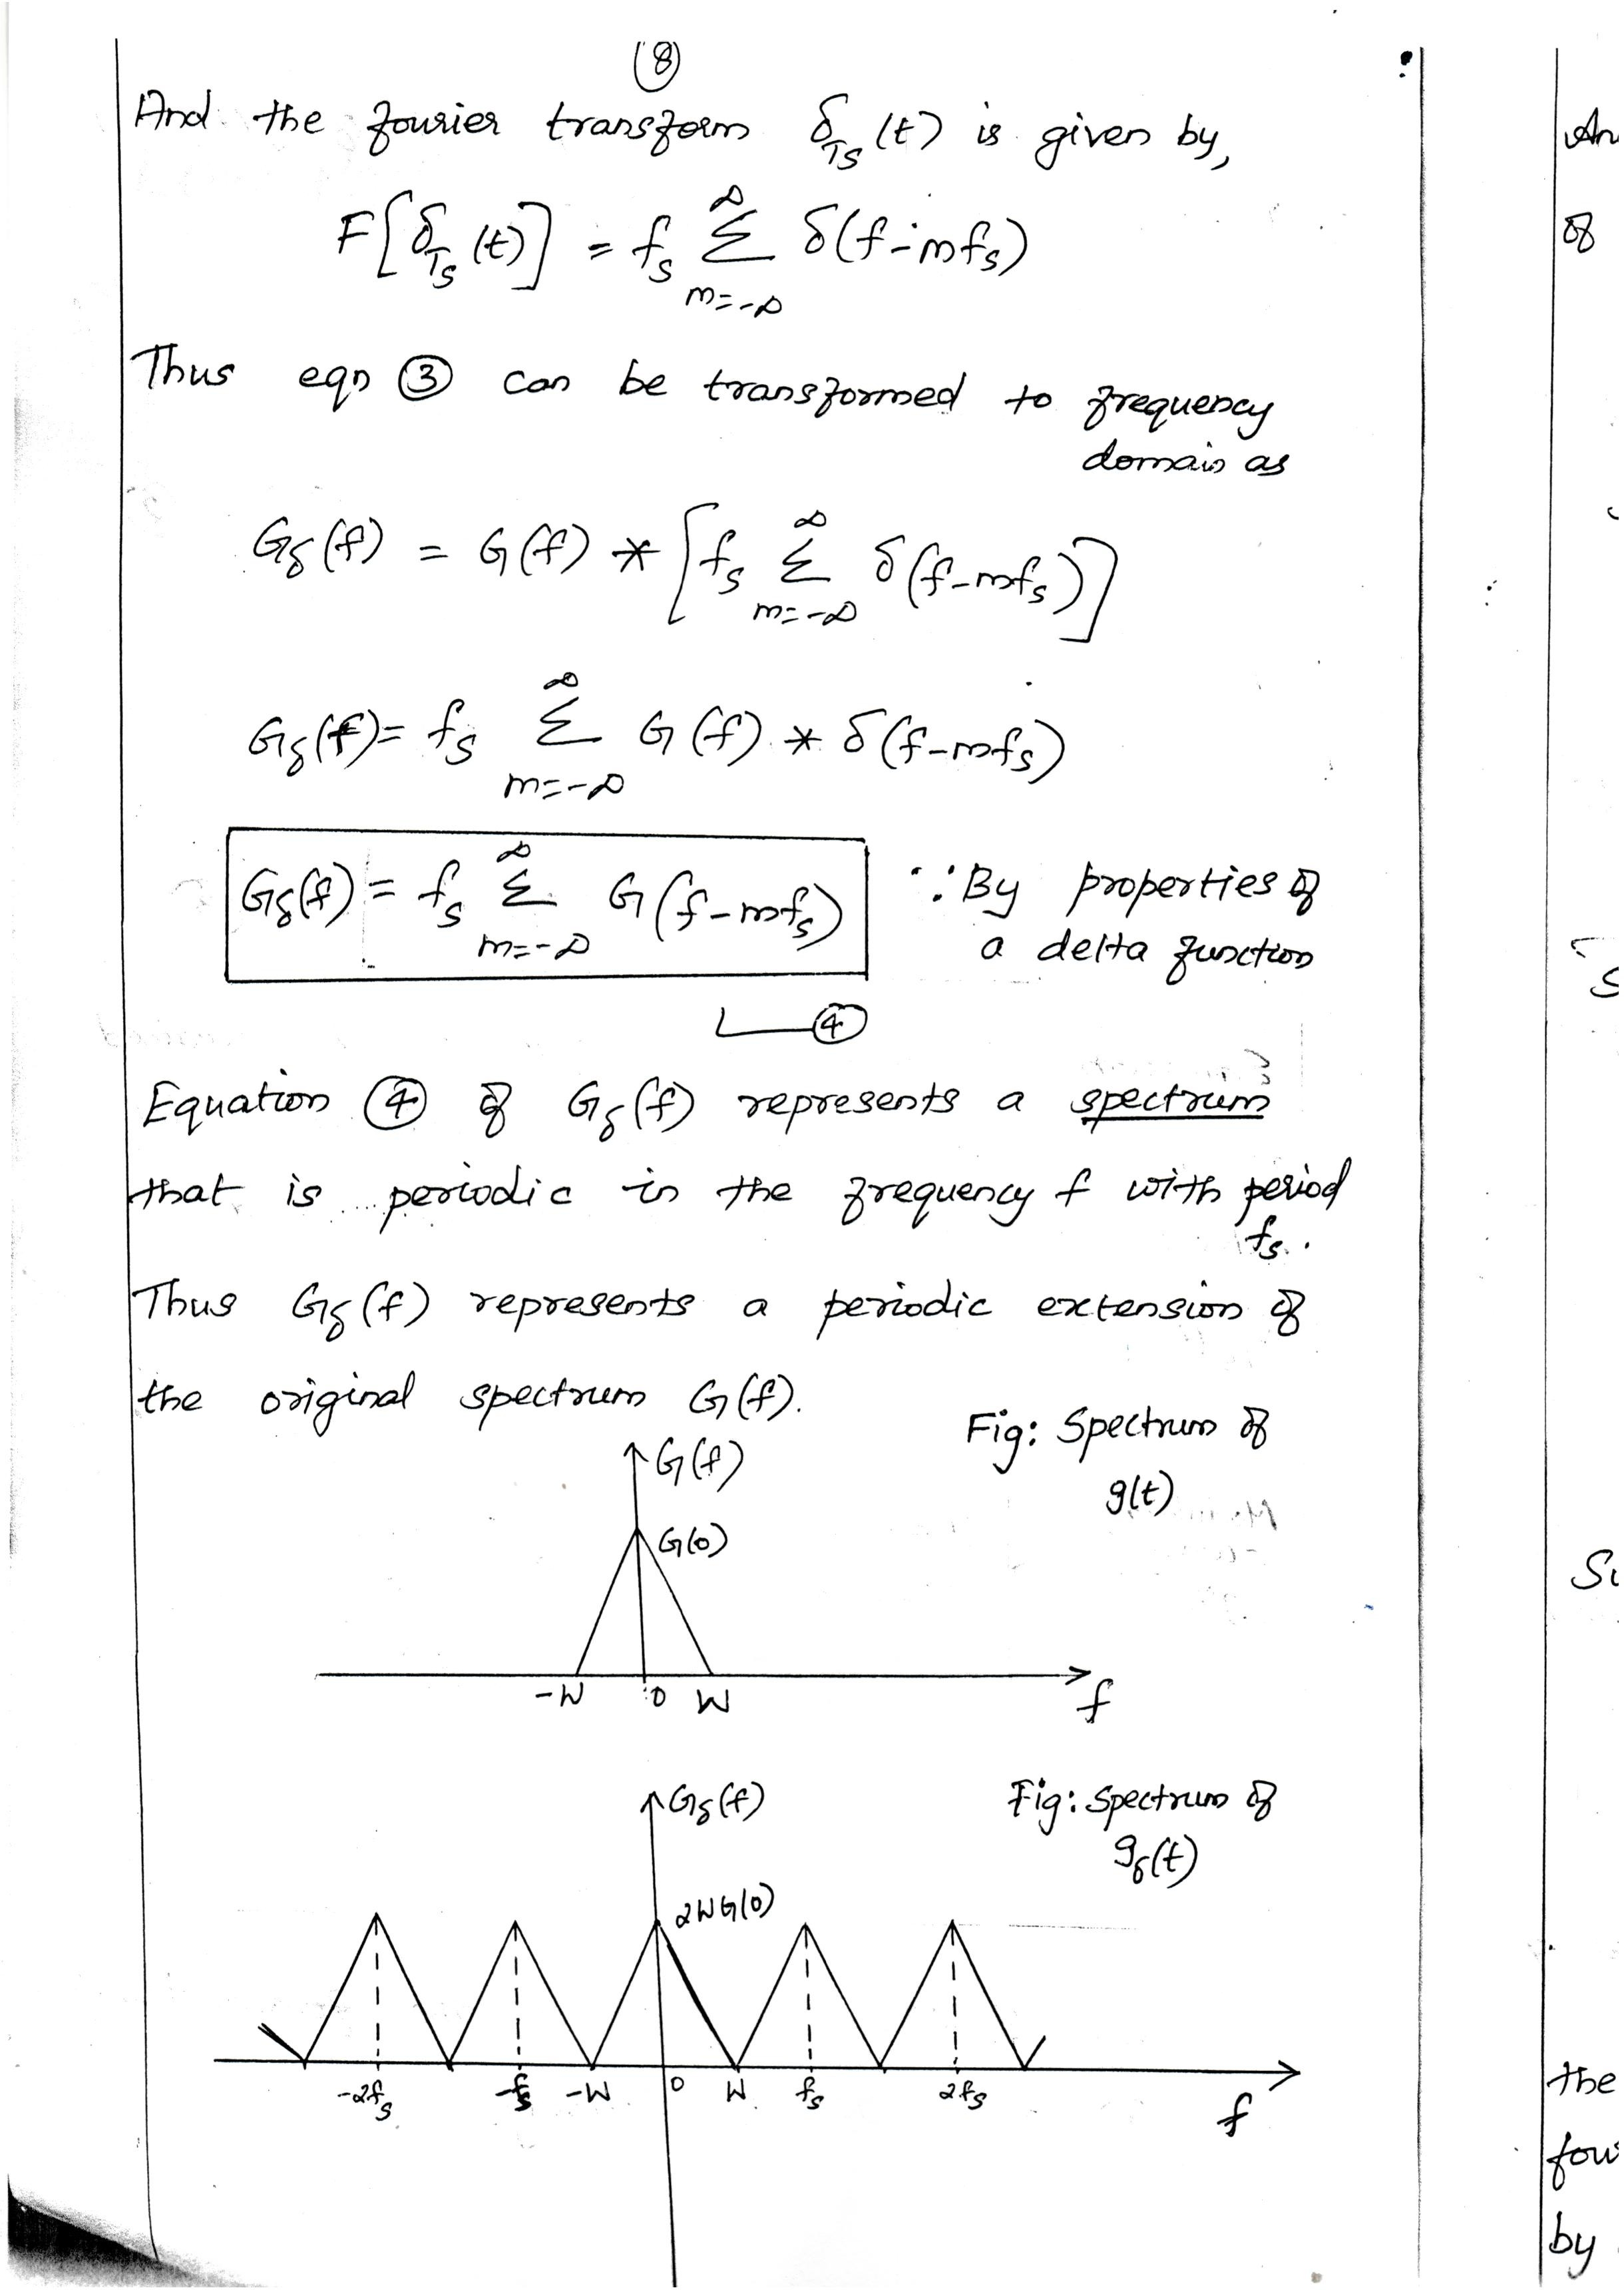 (8)
And the fourier transform δ_Ts(t) is given by,
F[δ_Ts(t)] = f_s ∞Σm=-∞ δ(f-mf_s)
Thus eqn ③ can be transformed to frequency
domain as
G_δ(f) = G(f) * [f_s ∞Σm=-∞ δ(f-mf_s)]
G_δ(f) = f_s ∞Σm=-∞ G(f) * δ(f-mf_s)
G_δ(f) = f_s ∞Σm=-∞ G(f-mf_s) ∵ By properties of
a delta function
④
Equation ④ of G_δ(f) represents a spectrum
that is periodic in the frequency f with period
f_s.
Thus G_δ(f) represents a periodic extension of
the original spectrum G(f).
Fig: Spectrum of
g(t)
G(f)
G(0)
-W 0 W
f
G_δ(f)
Fig: Spectrum of
g_δ(t)
2WG(0)
-2f_s -f_s -W 0 W f_s 2f_s
f
An
of
S
the
by